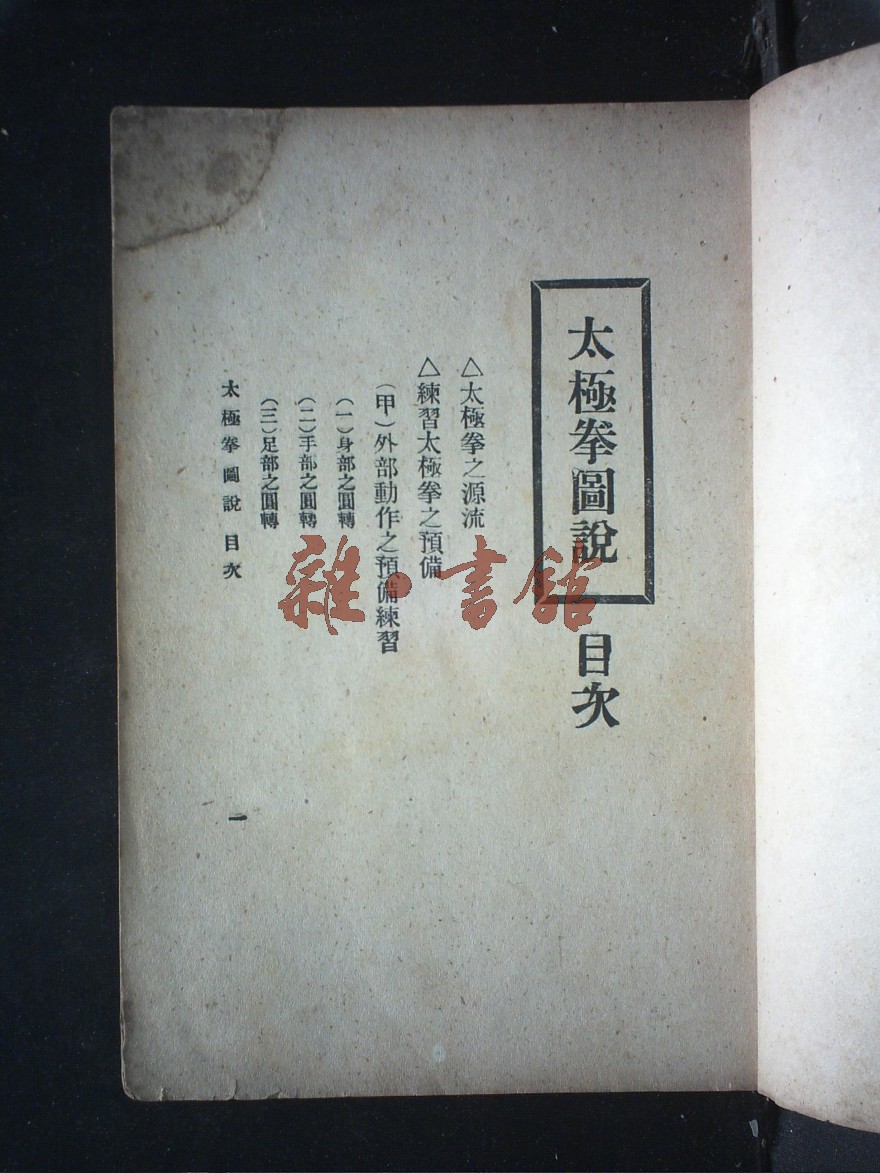 太極拳圖說
目次
△太極拳之源流
△練習太極拳之預備
（甲）外部動作之預備練習
（一）身部之圓轉
（二）手部之圓轉
（三）足部之圓轉
太極拳圖說 目次
一
雜·書館